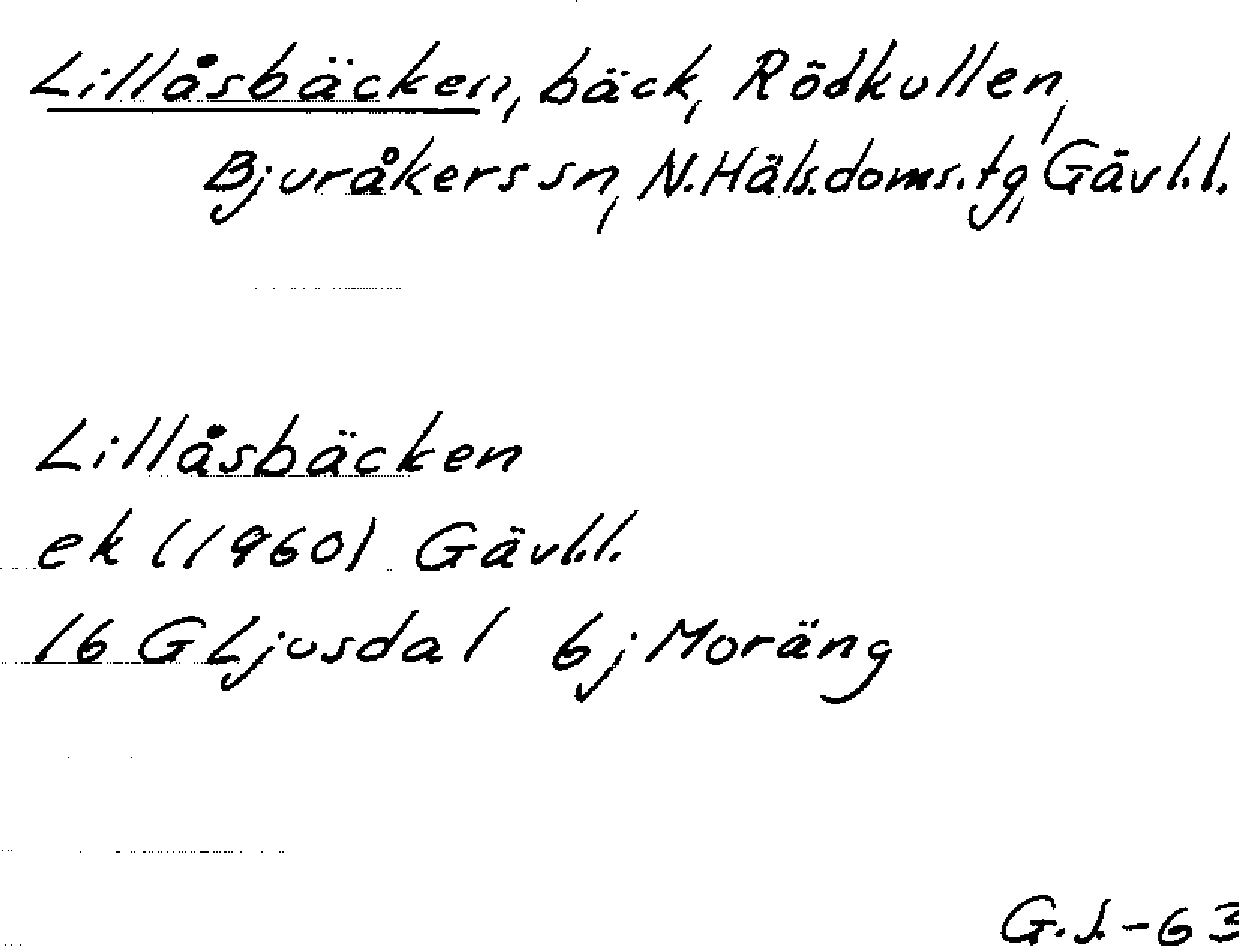 Lillåsbäcken, bäck, Rödkullen,
Bjuråkers sn, N.Häls.doms.tg, Gävl.l.
Lillåsbäcken
ek (1960) Gävl.l.
16 G Ljusdal 6j Moräng
G.J.-63